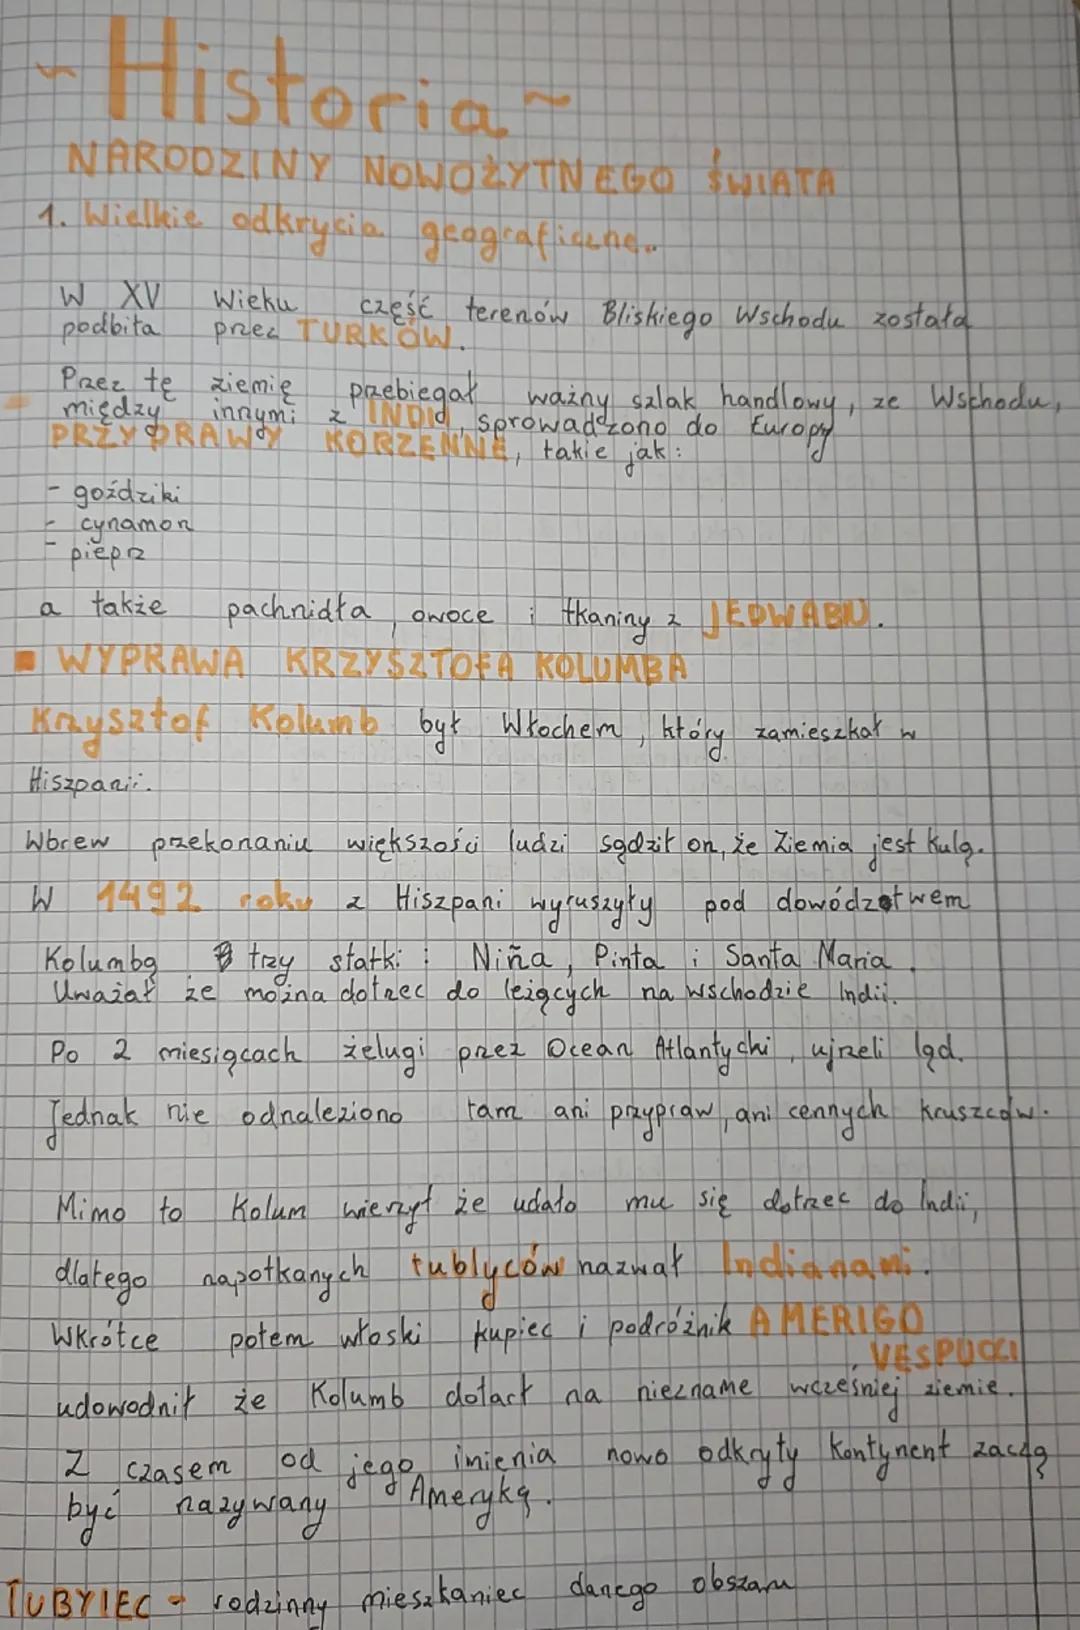 ~ Historia ~
NARODZINY NOWOŻYTNEGO ŚWIATA
1. Wielkie odkrycia geograficzne..
W XV Wieku część terenów Bliskiego Wschodu została
podbita przez TURKÓW.
Przez tę ziemię przebiegał ważny szlak handlowy, ze Wschodu,
między innymi z INDID, sprowadzono do Europy
PRZYPRAWY KORZENNE, takie jak:
- goździki
- cynamon
- pieprz
a także pachnidła, owoce i tkaniny z JEDWABIU.
WYPRAWA KRZYSZTOFA KOLUMBA
Krzysztof Kolumb był Włochem, który zamieszkał w
Hiszpanii.
Wbrew przekonaniu większości ludzi sądził on, że Ziemia jest Kulą.
W 1492 roku z Hiszpani wyruszyły pod dowództwem
Kolumba trzy statki: Niña, Pinta i Santa Maria.
Uważał że można dotrzec do leżących na wschodzie Indii.
Po 2 miesiącach żelugi przez Ocean Atlantychi, ujrzeli ląd.
Jednak nie odnaleziono tam ani przypraw, ani cennych kruszców.
Mimo to Kolum wierzył że udało mu się dotrzec do Indii,
dlatego napotkanych tublyców nazwał Indianami.
Wkrótce potem włoski kupiec i podróżnik AMERIGO
VESPUCCI
udowodnił że Kolumb dotarł na niezname wcześniej ziemie.
Z czasem od jego imienia nowo odkryty kontynent zaczą
być nazywany Ameryką.
TUBYLEC - rodzinny mieszkaniec danego obszaru